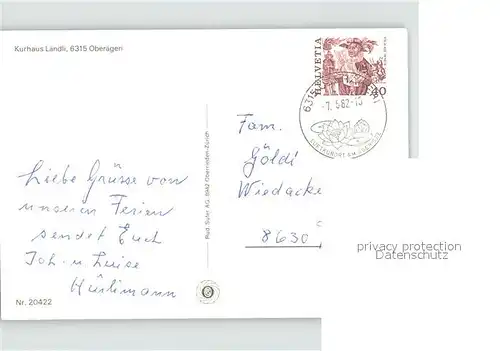 Kurhaus Ländli, 6315 Oberägeri
HELVETIA
40
6315
-7. 5.82-15
Liebe Grüsse von
unseren Ferien
sendet Euch
Joh. u. Luise
Hürlimann
Nr. 20422
Photo Syfer AG, 8942 Oberrieden-Zürich
Fam.
Göldi
Wiedacke
8630
privacy protection
Datenschutz